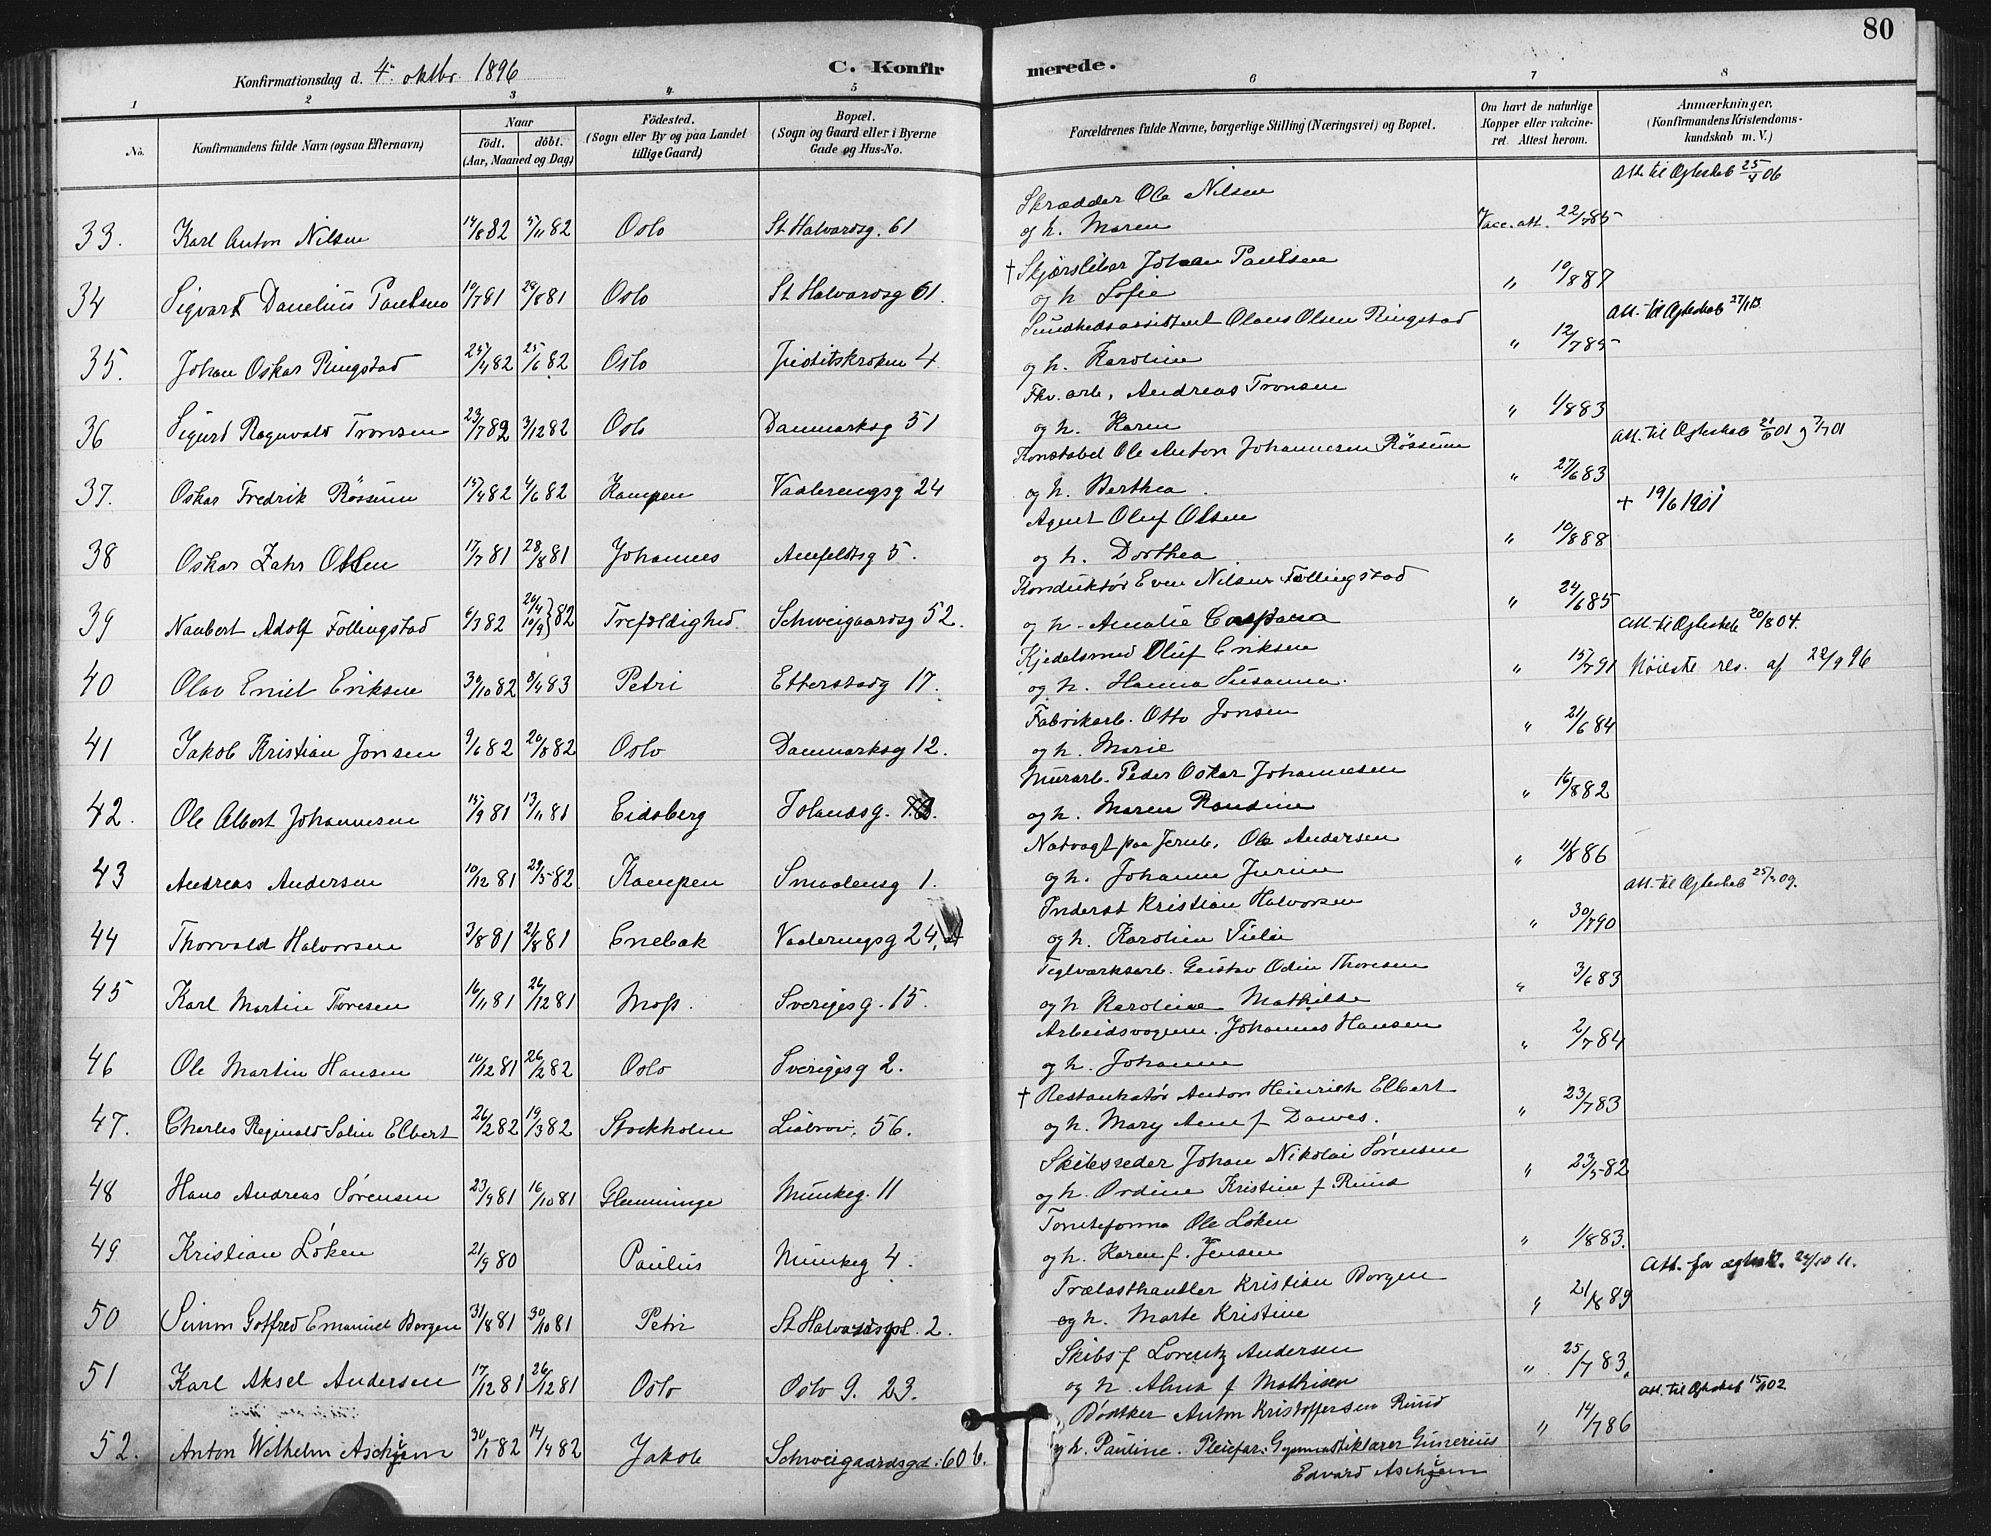 80
Konfirmationsdag d. 4. oktbr 1896 C. Konfir merede.
1 2 3 4 5 6 7 8
No. Konfirmandens fulde Navn (ogsaa Efternavn) Naar födt. döbt. (Aar, Maaned og Dag) Födested. (Sogn eller By og paa Landet tillige Gaard) Bopæl. (Sogn og Gaard eller i Byerne Gade og Hus-No. Forældrenes fulde Navne, borgerlige Stilling (Næringsvei) og Bopæl. Om havt de naturlige Kopper eller vakcineret. Attest herom. Anmærkninger. (Konfirmandens Kristendomskundskab m. V.)
Skrædder Ole Nilsen Att. til Ægteskab 25/4 06
33. Karl Anton Nilsen 14/8 82 5/11 82 Oslo St Halvardsg. 61 og h. Maren Vacc. att. 22/7 85
† Skjærsliber Johan Paulsen
34 Sigvart Danelius Paulsen 10/7 81 28/8 81 Oslo St Halvardsg 61. og h Sofie " 10/8 87
Sundhedsassistent Olaus Olsen Ringstad Att. til Ægteskab
35. Johan Oskar Ringstad 25/4 82 25/6 82 Oslo 4 og h. Karoline " 12/7 85
Fhv. arb. Andreas Tronsen
36 Sigurd Ragnvald Tronsen 23/7 82 3/12 82 Oslo Danmarksg 51 og h. Karen " 1/8 83
Konstabel Ole Anton Johannesen Røssum Att. til Ægteskab 21/6 01 og 7/7 01
37. Oskar Fredrik Røssum 15/4 82 4/6 82 Kampen Vaalerengsg 24 og h. Berthea " 27/6 83
Agent Oluf Olsen + 19/6 1901
38 Oskar Zahr Olsen 17/7 81 28/8 81 Johannes Anfeldtsg 5. og h. Dorthea " 10/8 88
Konduktør Even Nilsen Føllingstad
39 Naubert Adolf Føllingstad 6/3 82 20/4 10/9 } 82 Trefoldighed Schweigaardsg 52. og h. Amalie " 24/6 85
Kjedelsmed Oluf Eriksen Att. til Ægteskab 20/8 04.
40 Olav Emil Eriksen 30/10 82 8/4 83 Petri Etterstadg 17. og h. Hanna Susanna. " 15/7 91 Høieste res. af 22/9 96
Fabrikarb. Otto Jonsen
41 Jakob Kristian Jonsen 9/6 82 20/8 82 Oslo Danmarksg 12. og h. Marie " 21/6 84
Murarb. Peder Oskar Johannesen
42. Ole Albert Johannesen 15/9 81 13/11 81 Eidsberg Jolandsg. og h. Maren Randine " 16/8 82
Natvagt paa Jernb. Ole Andersen
43 Andreas Andersen 10/12 81 29/5 82 Kampen Smaalensg 1. og h. Johanne Jurine " 11/8 86
Inderst Kristian Halvorsen Att. til Ægteskab 25/ 09.
44 Thorvald Halvorsen 3/8 81 21/8 81 Enebak Vaalerengsg 24 og h. Karoline " 30/7 90
Teglværksarb. Gustav Odin Thoresen
45 Karl Martin Toresen 16/11 81 26/12 81 Moss. Sverigesg. 15. og h Karoline Mathilde " 3/6 83
Arbeidsvogm. Johannes Hansen
46 Ole Martin Hansen 10/12 81 26/2 82 Oslo Sverigesg 2. og h. Johanne " 2/7 84
† Restauratør Anton Heinrich Elbert
47. Charles Reginald Salin Elbert 26/2 82 19/3 82 Stockholm Liabrov. 56. og h. Mary Ann f Dawes. " 23/7 83
Skibsreder Johan Nikolai Sørensen
48 Hans Andreas Sørensen 23/9 81 16/10 81 Glemminge Munkeg. 11 og h. Ordine Kristine f. Ruud " 23/5 82
Tomteformn Ole Løken
49 Kristian Løken 21/9 80 Paulus Munkeg 4. og h. Karen f. Jensen " 1/8 83.
Trælasthandler Kristian Borgen Att. for ægtesk. 24/10 11.
50 Simon Gotfred Emanuel Borgen 31/8 81 30/10 81 Petri St Halvardspl. 2. og h. Marte Kristine " 21/8 89
Skibsf Lorentz Andersen
51 Karl Aksel Andersen 17/12 81 26/12 81 Oslo Oslo g. 23. og h. Alma f Mathisen " 25/7 83.
Bødtker Anton Kristoffersen Ruud Att. til Ægteskab 02
52. Anton Wilhelm Aschjem 30/1 82 14/4 82 Jakob Schweigaardsgd. 60 b. og h. Pauline. Pleiefar: Gymnastiklærer Gunerius " 14/7 86
Edvard Aschjem